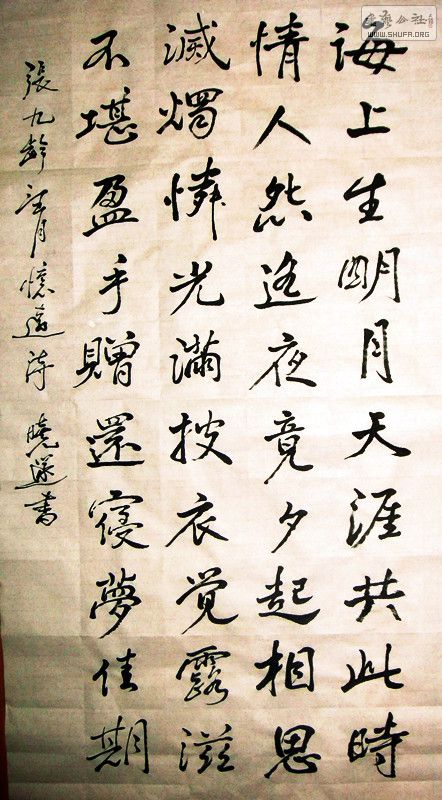 书艺公社
WWW.SHUFA.ORG
海上生明月天涯共此時
情人怨遥夜竟夕起相思
滅燭憐光滿披衣觉露滋
不堪盈手贈還寢夢佳期
張九齡望月懷遠詩 曉書